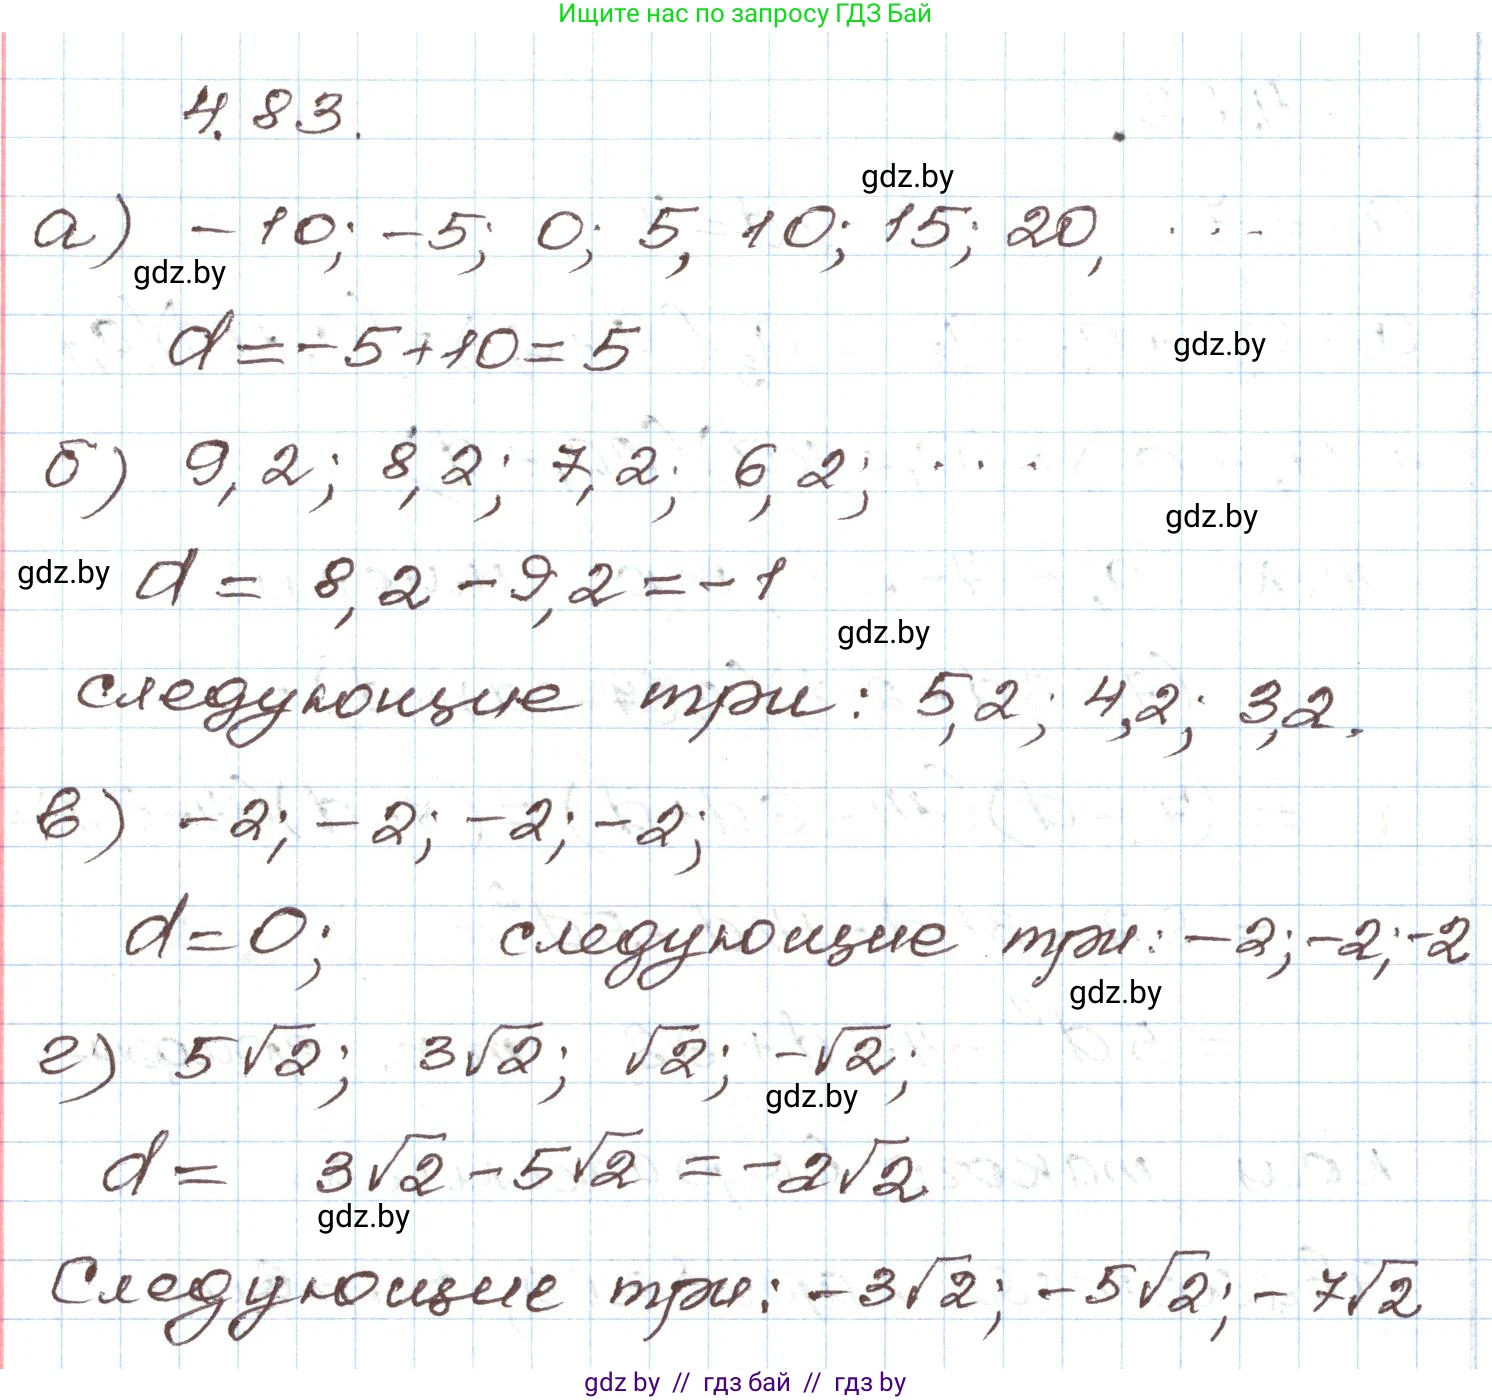 Ищите нас по запросу ГДЗ Бай
4.83.
gdz.by
а) -10; -5; 0; 5, 10; 15; 20, ...
gdz.by
d = -5+10 = 5
gdz.by
б) 9,2; 8,2; 7,2; 6,2; ...
gdz.by
gdz.by
d = 8,2 - 9,2 = -1
gdz.by
следующие три: 5,2; 4,2; 3,2.
в) -2; -2; -2; -2;
d=0; следующие три: -2; -2; -2
gdz.by
г) 5√2; 3√2; √2; -√2;
gdz.by
d = 3√2 - 5√2 = -2√2
gdz.by
Следующие три: -3√2; -5√2; -7√2
gdz by // гдз бай // гдз by